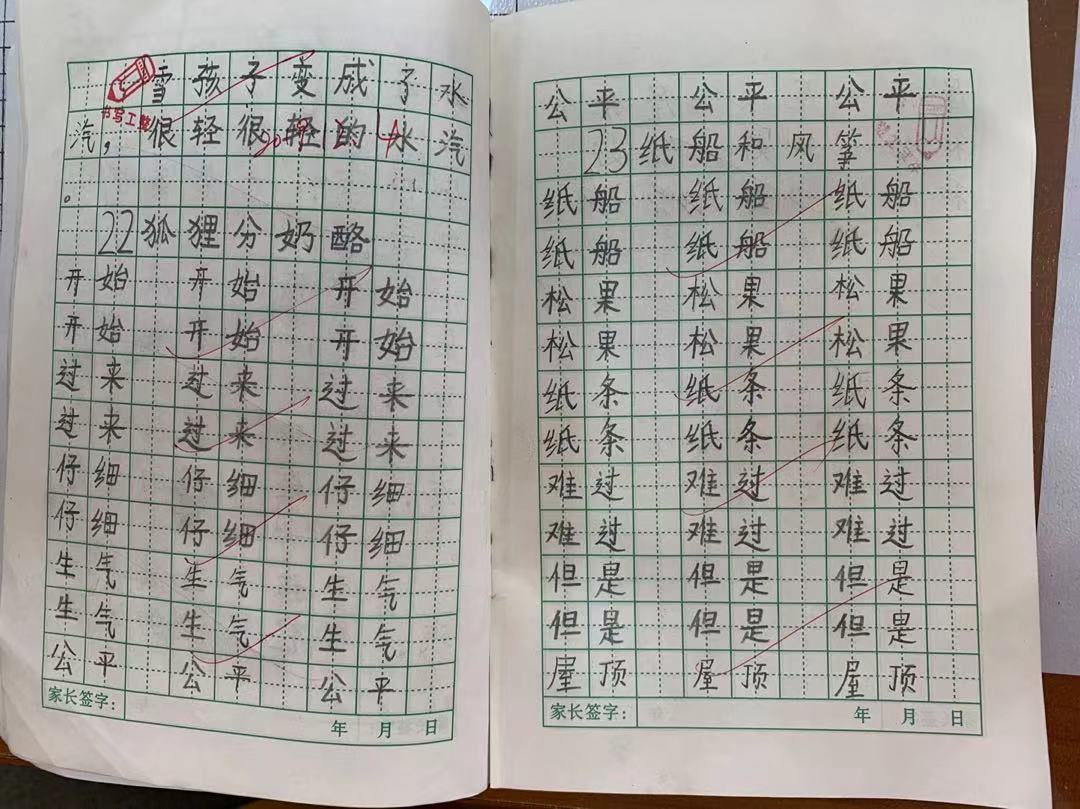 雪孩子变成了水
汽，很轻很轻的水汽
。
书写工整
22狐狸分奶酪
开始 开始 开始
开始 开始 开始
过来 过来 过来
过来 过来 过来
仔细 仔细 仔细
仔细 仔细 仔细
生气 生气 生气
生气 生气 生气
公平 公平 公平
家长签字： 年 月 日
公平 公平 公平
23纸船和风筝
纸船 纸船 纸船
纸船 纸船 纸船
松果 松果 松果
松果 松果 松果
纸条 纸条 纸条
纸条 纸条 纸条
难过 难过 难过
难过 难过 难过
但是 但是 但是
但是 但是 但是
屋顶 屋顶 屋顶
家长签字： 年 月 日